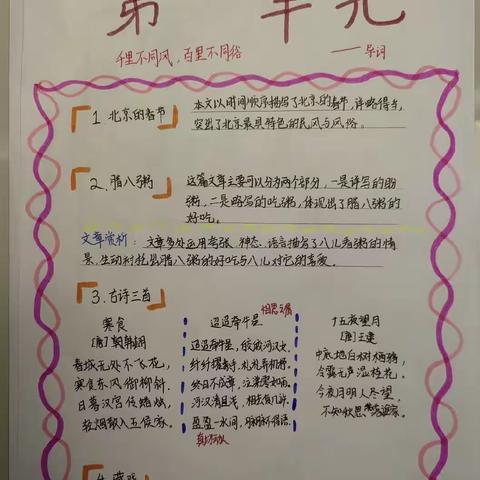 第 单元
千里不同风，百里不同俗
——导词
1 北京的春节
本文以时间顺序描写了北京的春节，详略得当，
突出了北京最具特色的民风与风俗。
2.腊八粥
这篇文章主要可以分为两个部分，一是详写的盼
粥，二是略写的吃粥，体现出了腊八粥的
好吃。
文章赏析：文章多处运用夸张、神态、语言描写了八儿看粥的情
景，生动衬托出腊八粥的好吃与八儿对它的喜爱。
3.古诗三首
寒食
[唐]韩翃
春城无处不飞花，
寒食东风御柳斜，
日暮汉宫传蜡烛，
轻烟散入五侯家。
相思之情
迢迢牵牛星
迢迢牵牛星，皎皎河汉女，
纤纤擢素手，札札弄机杼。
终日不成章，泣涕零如雨，
河汉清且浅，相去复几许，
盈盈一水间，脉脉不得语。
十五夜望月
[唐]王建
中庭地白树栖鸦，
冷露无声湿桂花。
今夜月明人尽望，
不知秋思落谁家。